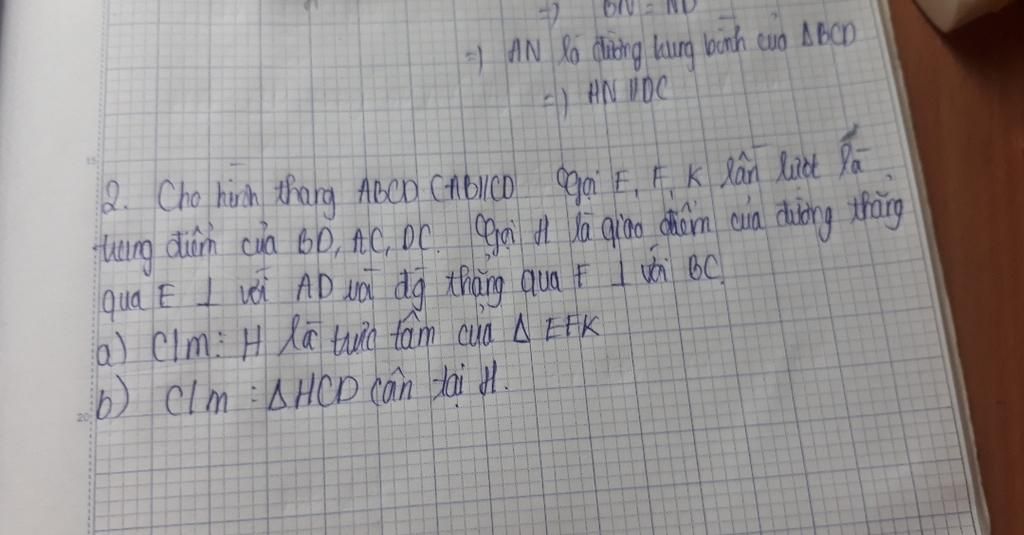 =) BN = ND
=) AN là đường trung bình của ΔBCD
=) AN // DC
2. Cho hình thang ABCD (AB//CD Gọi E, F, K lần lượt là
trung điểm của BD, AC, DC. Gọi H là giao điểm của đường thẳng
qua E ⊥ với AD và đg thẳng qua F ⊥ với BC.
a) C/m: H là trực tâm của Δ EFK
b) C/m : ΔHCD cân tại H.